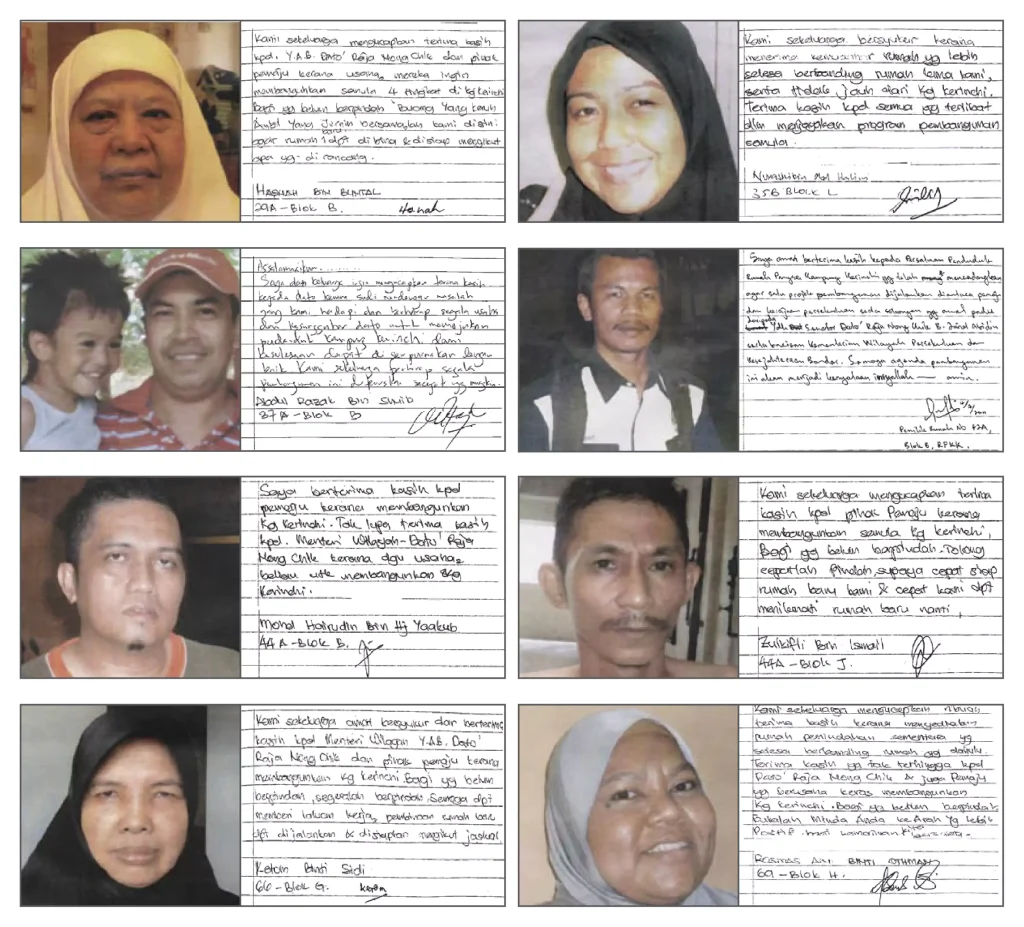 Kami sekeluarga mengucapkan terima kasih
kpd. Y.A.B. Dato' Raja Nong Chik dan pihak
pemaju kerana usaha, mereka ingin
membangunkan semula 4 tingkat di kg kerinchi
Bagi yg belum berpindah Buang Yang keruh
Ambil Yang Jernih bersamalah kami disini
agar rumah baru dpt di bina & disiap mengikut
apa yg di rancang.
HASNAH BIN BUNTAL
29A - Blok B.
Hasnah
Kami sekeluarga bersyukur kerana
menerima rumah yg lebih
selesa berbanding rumah lama kami,
serta tidak jauh dari Kg kerinchi.
Terima kasih kpd semua yg terlibat
dlm menjayakan program pembangunan
semula.
Nurashikin Halim
35B Blok L
Assalamualaikum......
Saya dan keluarga ingin mengucapkan terima kasih
kepada dato kerana sudi mendengar masalah
yang kami hadapi dan berharap segala usaha
dan kesanggupan dato untuk memajukan
penduduk kampung kerinchi dan
kesulitan dapat di sempurnakan dengan
baik Kami sekeluarga berharap segala
pembangunan ini dipercepat secepat yg mungkin.
Abdul Razak Bin
37A - Blok B
Saya amat berterima kasih kepada Persatuan Penduduk
Rumah Pangsa Kampung Kerinchi yg telah mencadangkan
agar satu projek pembangunan dijalankan diantara pemaju
dan kerajaan persekutuan serta sokongan yg amat padu
daripada Senator Dato' Raja Nong Chik B. Zainal Abidin
serta bantuan Kementerian Wilayah Persekutuan dan
Kesejahteraan Bandar. Semoga agenda pembangunan
ini akan menjadi kenyataan insyallah — amin.
Pemilik Rumah No 42A,
Blok B, RPKK.
Saya berterima kasih kpd
pemaju kerana membangunkan
Kg Kerinchi. Tak lupa, terima kasih
kpd. Menteri Wilayah - Dato' Raja
Nong Chik kerana dgn usaha
beliau utk membangunkan Kg
Kerinchi.
Mohd Hairudin Bin Hj Yaakub
44A - Blok B.
Kami sekeluarga mengucapkan terima
kasih kpd pihak Pemaju kerana
membangunkan semula Kg kerinchi,
Bagi yg belum berpindah. Tolong
cepatlah Pindah, supaya cepat siap
rumah baru kami & cepat kami dpt
menikmati rumah baru nanti,
Zulkifli Bin Ismail
44A - Blok J.
Kami sekeluarga amat bersyukur dan berterima
kasih kpd Menteri Wilayah Y.A.B. Dato'
Raja Nong Chik dan pihak pemaju kerana
membangunkan Kg kerinchi. Bagi yg belum
berpindah, segeralah berpindah. Semoga dpt
memberi laluan kerja, pembinaan rumah baru
dpt di jalankan & disiapkan mengikut jadual
Ketom Binti Sidi
66 - Blok G.
Kami sekeluarga mengucapkan ribuan
terima kasih kerana menyediakan
rumah pemindahan sementara yg
selesa berbanding rumah yg dahulu.
Terima kasih yg tak terhingga kpd
Dato' Raja Nong Chik & juga Pemaju
yg berusaha keras membangunkan
Kg kerinchi. Bagi yg belum berpindah
Bukalah Minda Anda ke Arah Yg lebih
Positif
Rosmas Aini BINTI OTHMAN
69 - Blok H.